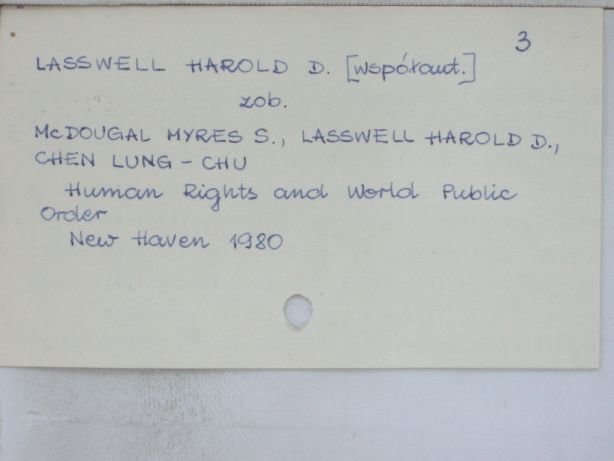 3
LASSWELL HAROLD D. [współaut.]
zob.
McDOUGAL MYRES S., LASSWELL HAROLD D.,
CHEN LUNG - CHU
Human Rights and World Public
Order
New Haven 1980